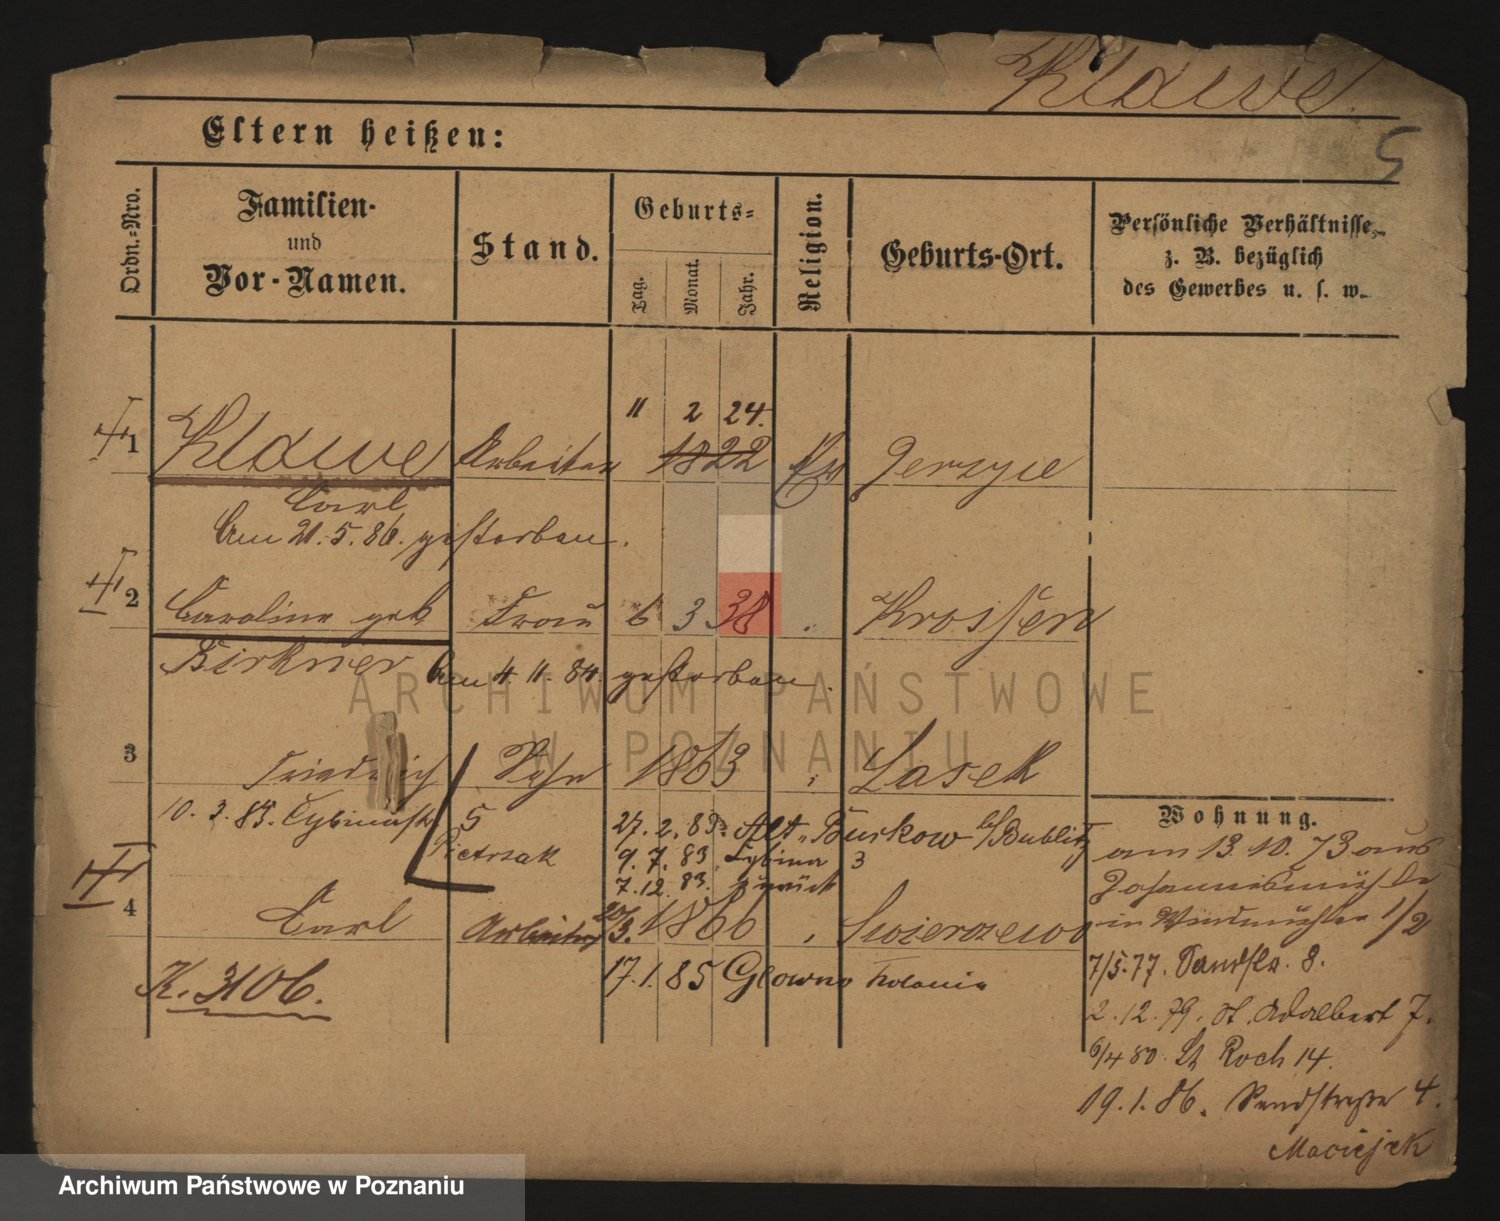 Klawe.
5
Eltern heißen:
Ordn.-Nro.
Familien-
und
Vor-Namen.
Stand.
Geburts-
Tag. Monat. Jahr.
Religion.
Geburts-Ort.
Persönliche Verhältnisse,
z. B. bezüglich
des Gewerbes u. s. w.
11 2 24.
1 Klawe Arbeiter 1822 Gerzyce
Carl
Am 21.5.86. gestorben.
2 Caroline geb Frau 6 3 38 Krossen
Birkner Am 4.11.84. gestorben.
3 Friedrich Sohn 1863 Lasek
10.3.85. Cybinastr 5
Pietrzak
27.2.83. Alt-Burkow b/Bublitz
9.7.83. Cybina 3
7.12.83. zurück
4 Carl Arbeiter 20/3. 1866 Swierczewo
K. 3106.
17.1.85 Glowno Kolonie
Wohnung.
am 13.10.73 aus
Johannismühle
in Windmühlen 1/2
7/5.77. Sandstr. 8.
2.12.79. St. Adalbert 7.
6/4 80. St Roch 14.
19.1.86. Sandstraße 4.
Maciejek
ARCHIWUM PAŃSTWOWE
W POZNANIU
Archiwum Państwowe w Poznaniu